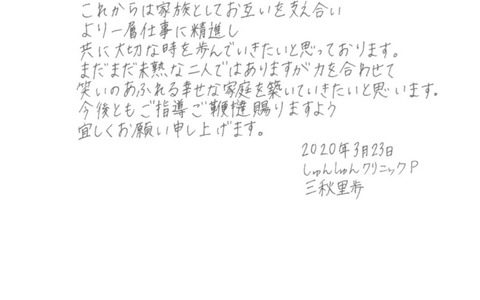 これからは家族としてお互いを支え合い
より一層仕事に精進し
共に大切な時を歩んでいきたいと思っております。
まだまだ未熟な二人ではありますが力を合わせて
笑いのあふれる幸せな家庭を築いていきたいと思います。
今後ともご指導ご鞭撻賜りますよう
宜しくお願い申し上げます。
2020年3月23日
しゅんしゅんクリニックP
三秋里歩